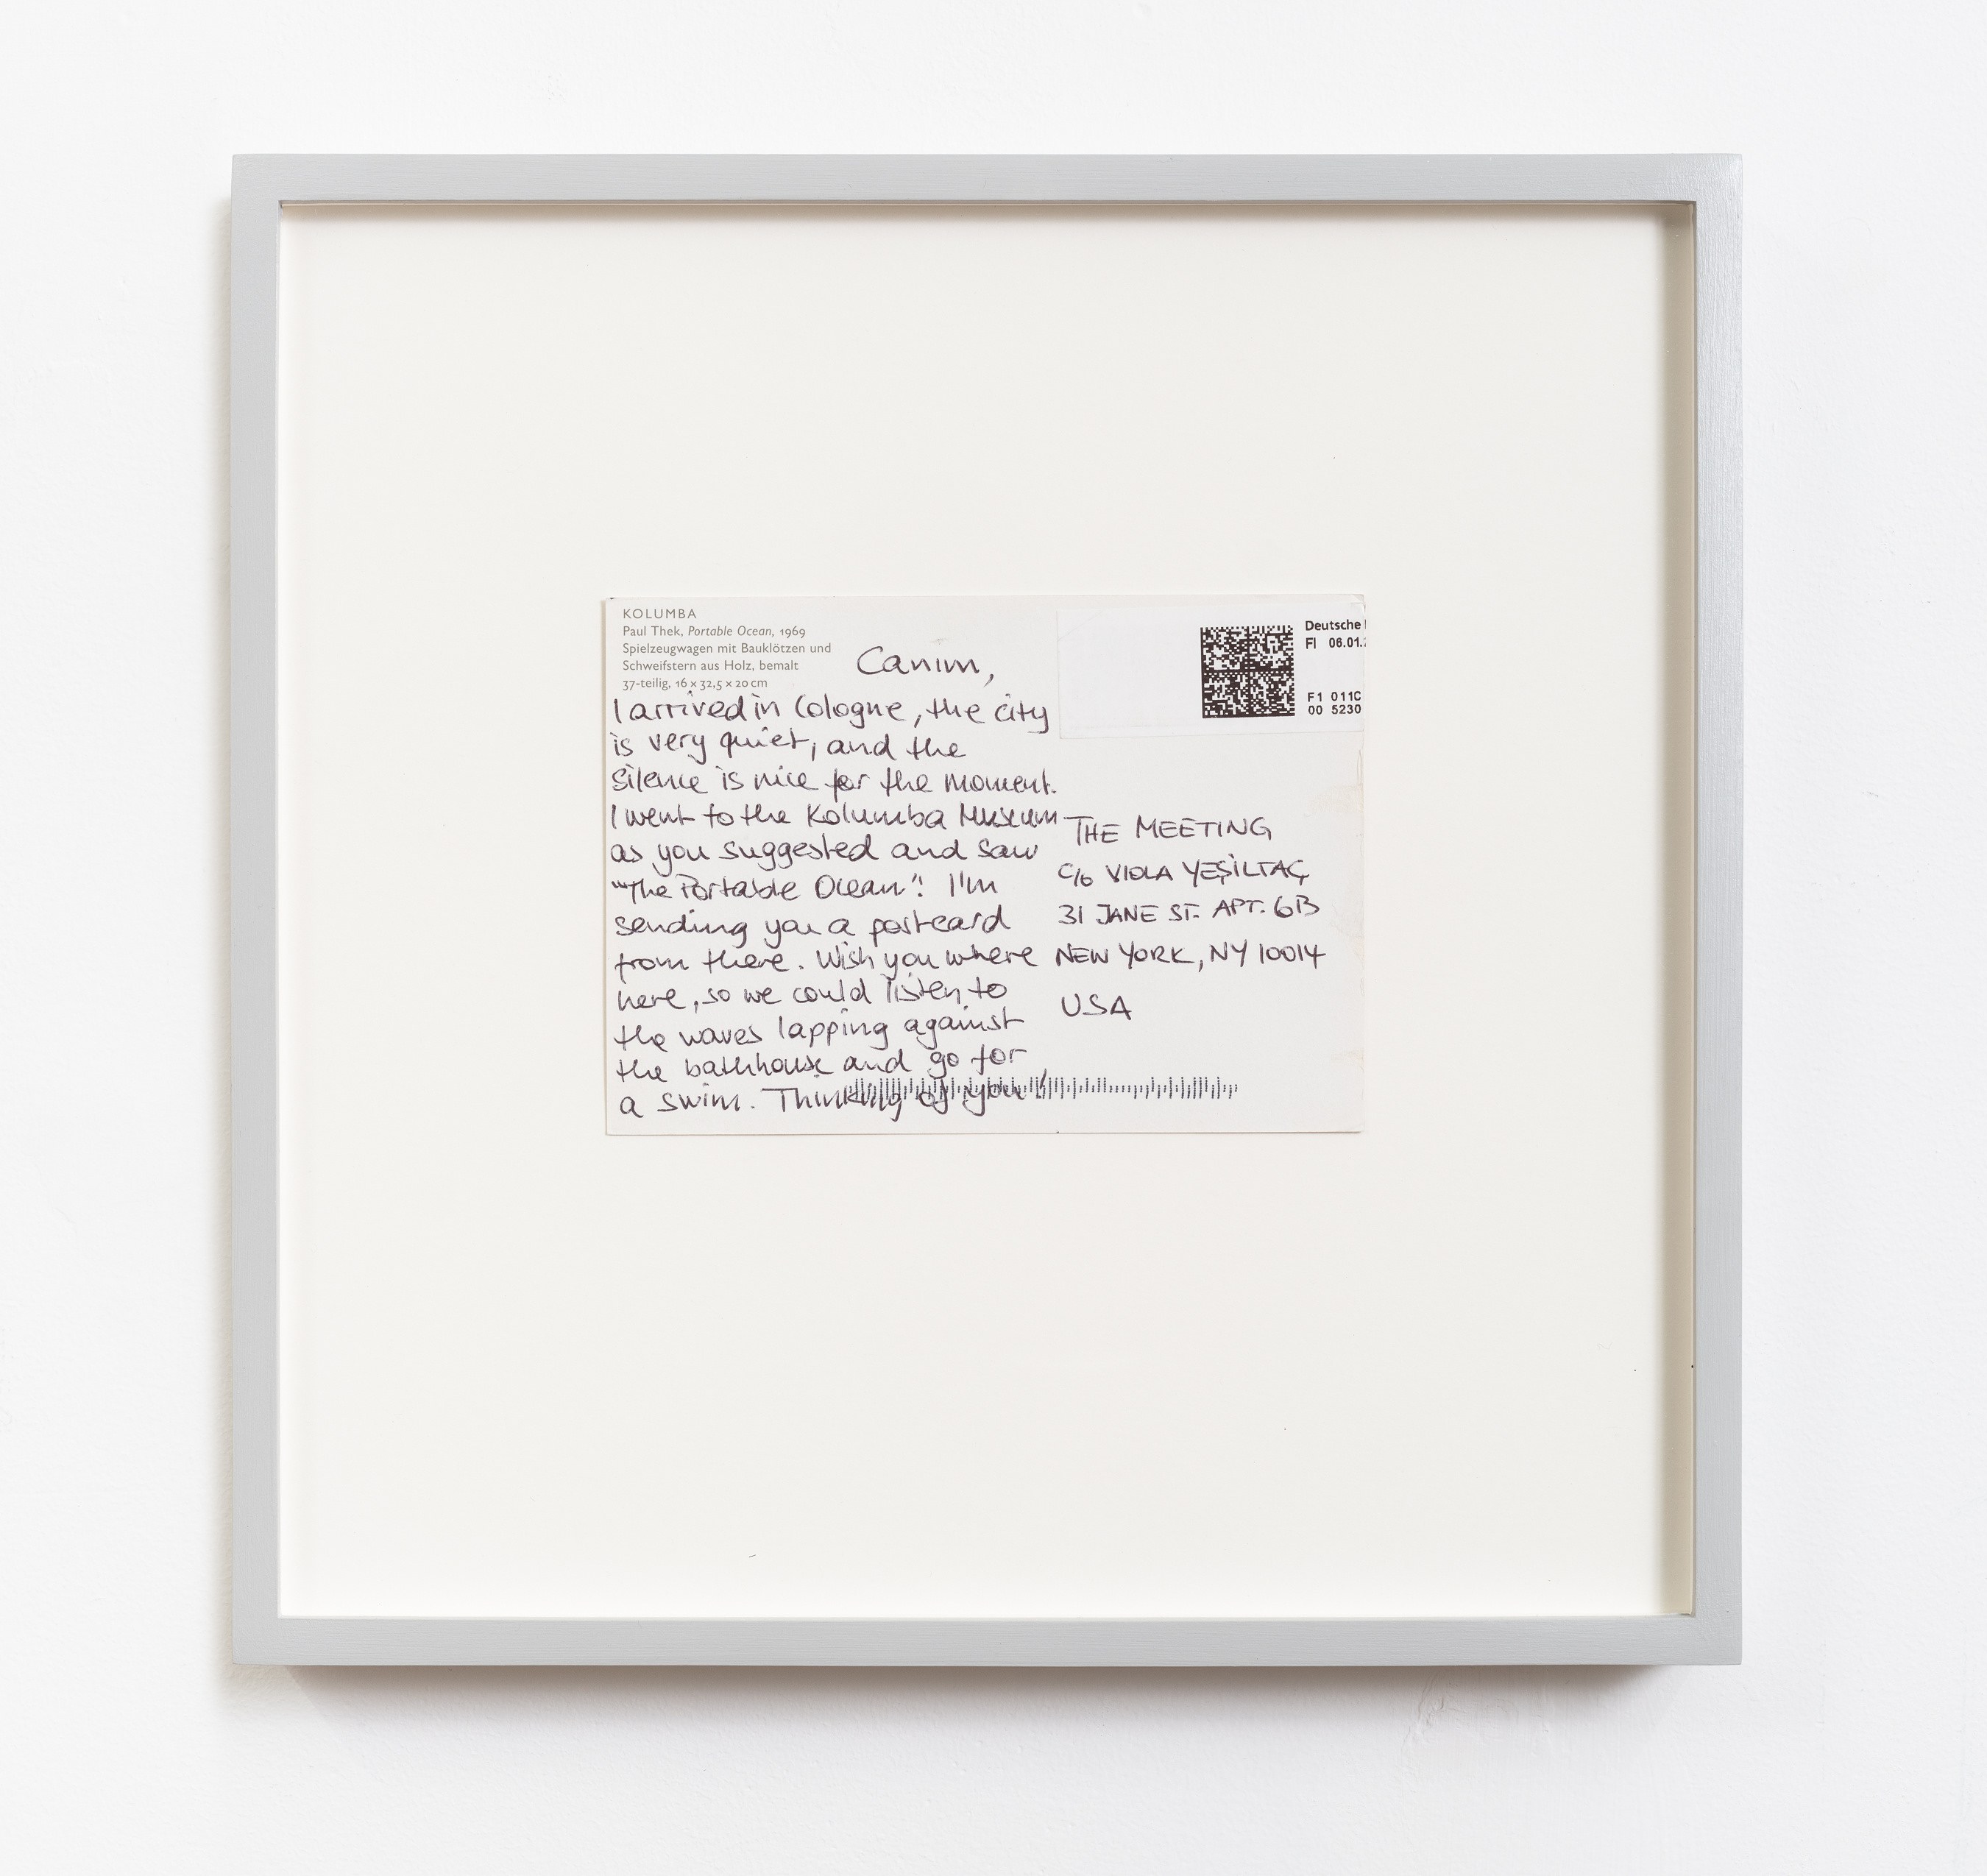 KOLUMBA
Paul Thek, Portable Ocean, 1969
Spielzeugwagen mit Bauklötzen und
Schweifstern aus Holz, bemalt
37-teilig, 16 x 32,5 x 20 cm
Canım,
I arrived in Cologne, the city
is very quiet, and the
silence is nice for the moment.
I went to the Kolumba Museum
as you suggested and saw
"The Portable Ocean"! I'm
sending you a postcard
from there. Wish you where
here, so we could listen to
the waves lapping against
the bathhouse and go for
a swim. Thinking of you!
Deutsche
FI 06.01.
F1 011C
00 5230
THE MEETING
C/o VIOLA YEŞİLTAÇ
31 JANE ST. APT. 6B
NEW YORK, NY 10014
USA